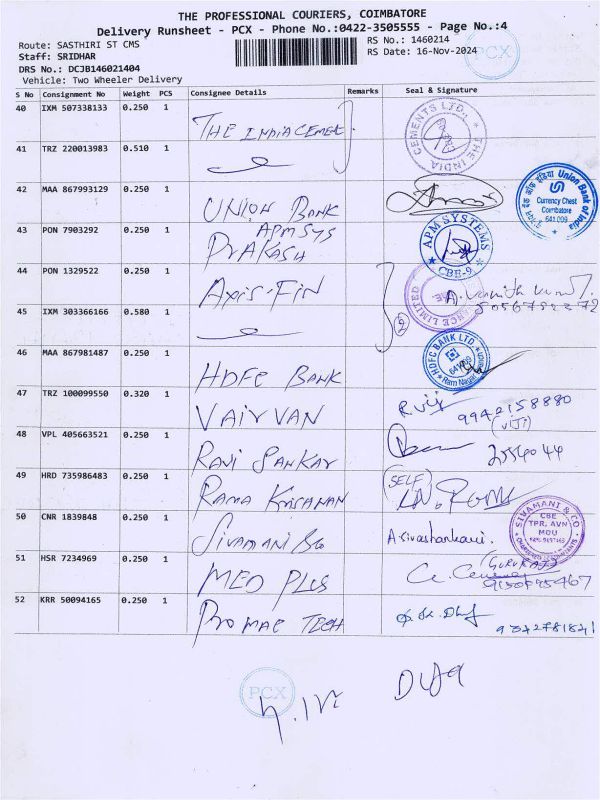 THE PROFESSIONAL COURIERS, COIMBATORE
Delivery Runsheet - PCX - Phone No.:0422-3505555 - Page No.:4
Route: SASTHIRI ST CMS
RS No.: 1460214
Staff: SRIDHAR
RS Date: 16-Nov-2024
DRS No.: DCJB146021404
Vehicle: Two Wheeler Delivery
PCX
S No Consignment No Weight PCS Consignee Details Remarks Seal & Signature
40 IXM 507338133 0.250 1 THE INDIA CEMET.
THE INDIA CEMENTS LTD.
41 TRZ 220013983 0.510 1
42 MAA 867993129 0.250 1 UNION BANK
Union Bank of India
Currency Chest
Coimbatore
641 009
43 PON 7903292 0.250 1 APM SYS
PRAKASH
APM SYSTEMS
CBE-9
44 PON 1329522 0.250 1 AXIS-FIN
45 IXM 303366166 0.580 1
2
46 MAA 867981487 0.250 1 HDFC BANK
HDFC BANK LTD.
Ram Nagar
47 TRZ 100099550 0.320 1 VAIRVAN
R. Viji 9942158880
(VIJI)
48 VPL 405663521 0.250 1 RAVI SANKAR
49 HRD 735986483 0.250 1 RAMA KRISHNAN
(SELF)
50 CNR 1839848 0.250 1 SIVAMANI &Co
A.sivashankari.
SIVAMANI & CO
CBE
TPR, AVN
MDU
CHARTERED ACCOUNTANTS
51 HSR 7234969 0.250 1 MED PLUS
(GURURAJ)
52 KRR 50094165 0.250 1 PROMAC TECH
9342781841
PCX